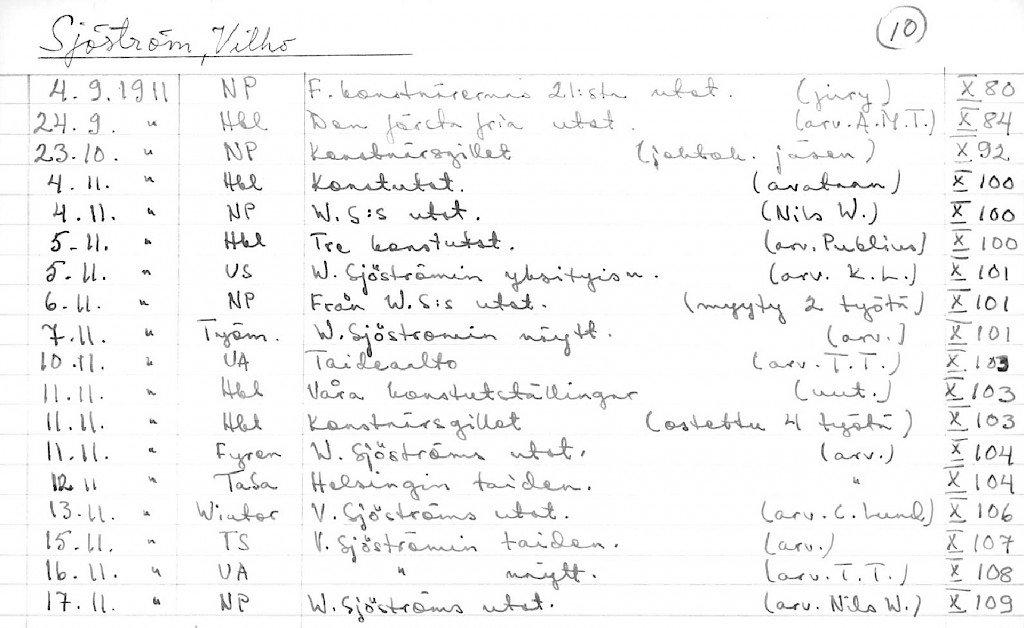 Sjöström, Vilho 10
4.9.1911 NP F. konstnärernas 21:sta utst. (jury) X 80
24.9. " Hbl Den första fria utst. (arv. A.M.T.) X 84
23.10. " NP Konstnärsgillet (johtok. jäsen) X 92
4.11. " Hbl Konstutst. (avataan) X 100
4.11. " NP W.S:s utst. (Nils W.) X 100
5.11. " Hbl Tre konstutst. (arv. Publius) X 100
5.11. " US W. Sjöströmin yksityisn. (arv. K.L.) X 101
6.11. " NP Från W.S:s utst. (myyty 2 työtä) X 101
7.11. " Työm. W. Sjöstromin näytt. (arv.) X 101
10.11. " UA Taideaalto (arv. T.T.) X 103
11.11. " Hbl Våra konstutställingar (uut.) X 103
11.11. " Hbl Konstnärsgillet (ostettu 4 työtä) X 103
11.11. " Fyren W. Sjöströms utst. (arv.) X 104
12.11 " TaSa Helsingin taiden. " X 104
13.11. " Wiator V. Sjöströms utst. (arv. C. Lund) X 106
15.11. " TS V. Sjöströmin taiden. (arv.) X 107
16.11. " UA " näytt. (arv. T.T.) X 108
17.11. " NP W. Sjöströms utst. (arv. Nils W.) X 109